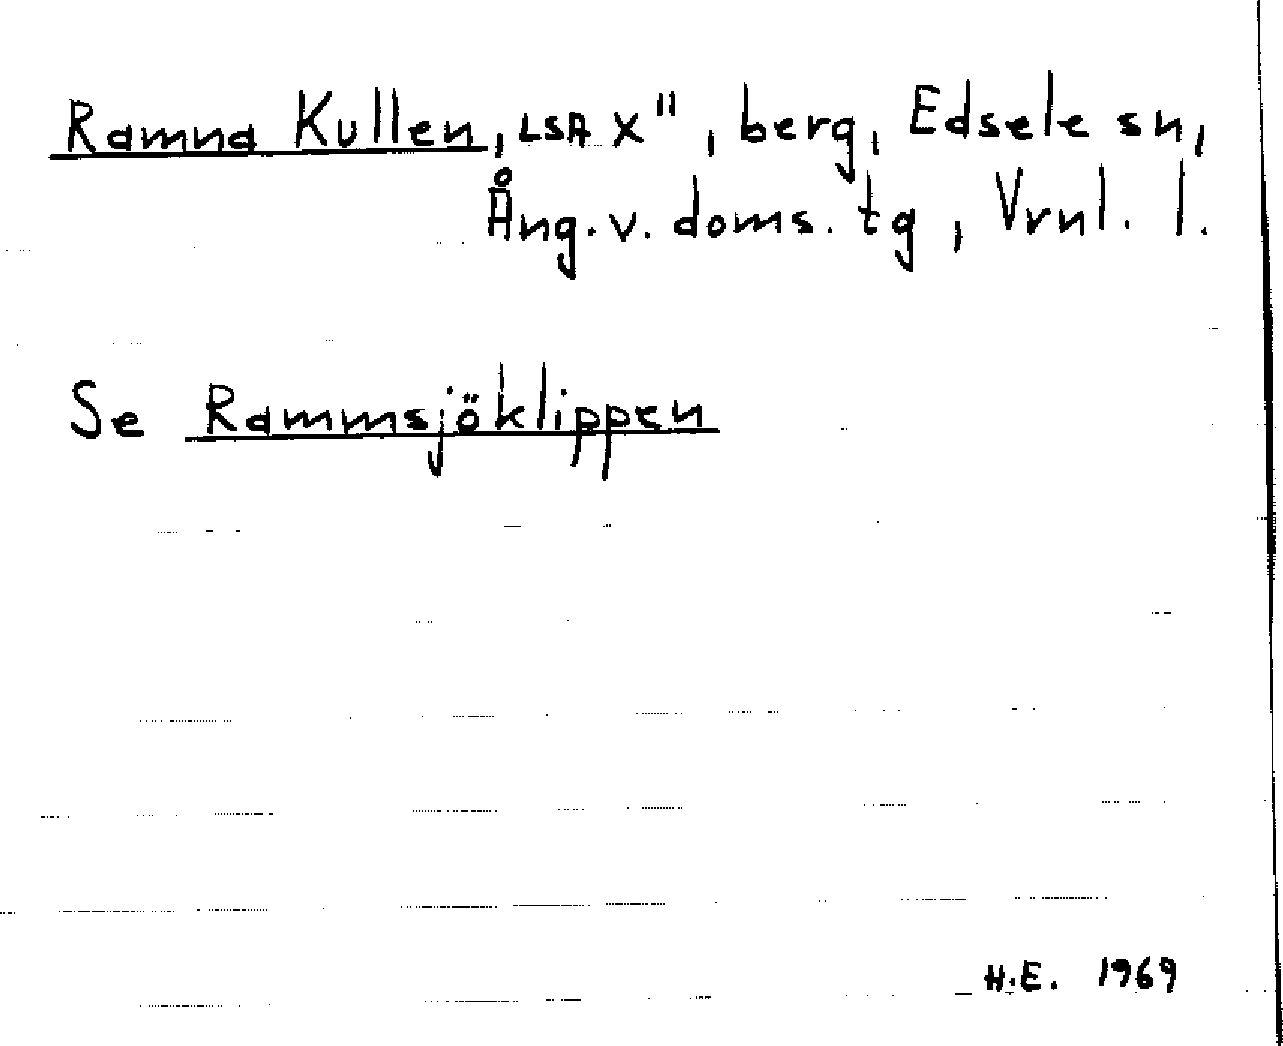 Ramna Kullen, LSA X", berg, Edsele sn,
Ång. v. doms. tg, Vrnl. l.
Se Rammsjöklippen
H.E. 1969